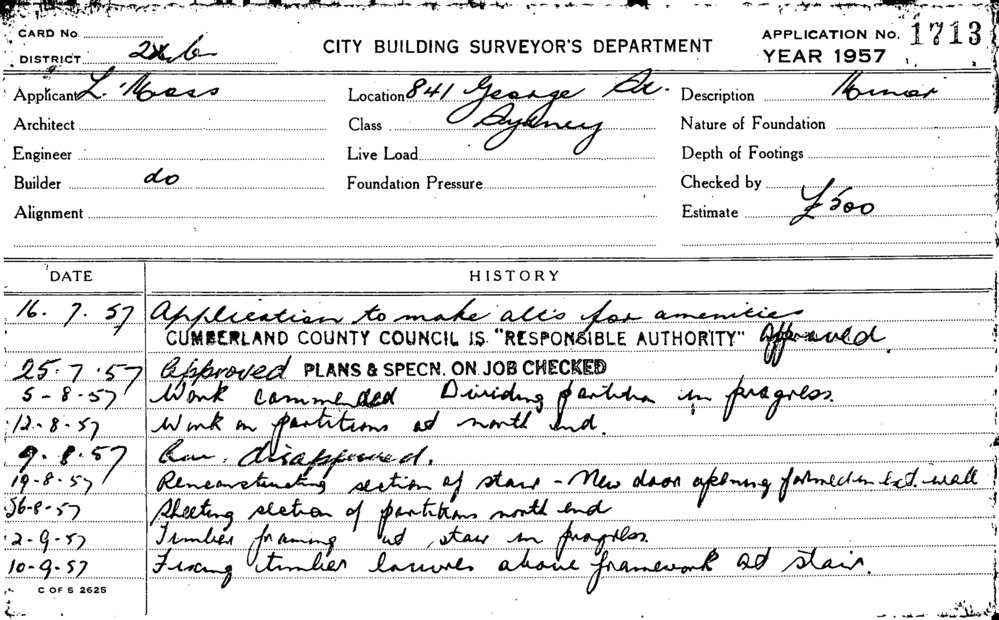 CARD No.
DISTRICT
CITY BUILDING SURVEYOR'S DEPARTMENT
APPLICATION No. 1713
YEAR 1957
Applicant L. Moss
Location 841 George St.
Description Minor
Architect
Class Sydney
Nature of Foundation
Engineer
Live Load
Depth of Footings
Builder do
Foundation Pressure
Checked by
Alignment
Estimate £500
DATE HISTORY
16. 7. 57 Application to make alts for amenities
CUMBERLAND COUNTY COUNCIL IS "RESPONSIBLE AUTHORITY" Approved.
25. 7. 57 Approved PLANS & SPECN. ON JOB CHECKED
5-8-57 Work commended Dividing partition in progress.
12-8-57 Work on partitions at north end.
9. 8. 57 disapproved.
19-8-57 Reconstructing section of stair - New door opening formed in Ext. wall
26-8-57 Sheeting section of partitions north end
2-9-57 Timber framing at stair in progress.
10-9-57 Fixing timber louvres above framework at stair.
C OF S 2625